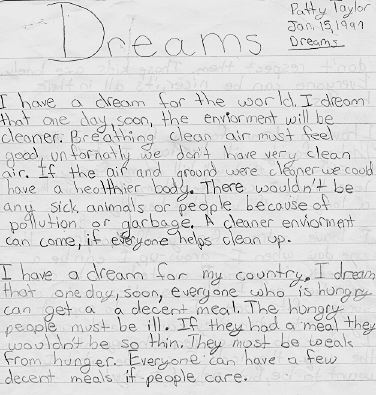 Patty Taylor
Jan. 15, 1999
Dreams
Dreams
I have a dream for the world. I dream
that one day, soon, the enviorment will be
cleaner. Breathing clean air must feel
good, unfornatly we don't have very clean
air. If the air and ground were cleaner we could
have a healthier body. There wouldn't be
any sick animals or people because of
pollution or garbage. A cleaner enviorment
can come, if everyone helps clean up.
I have a dream for my country. I dream
that one day, soon, everyone who is hungry
can get a a decent meal. The hungry
people must be ill. If they had a meal they
wouldn't be so thin. They must be weak
from hunger. Everyone can have a few
decent meals if people care.